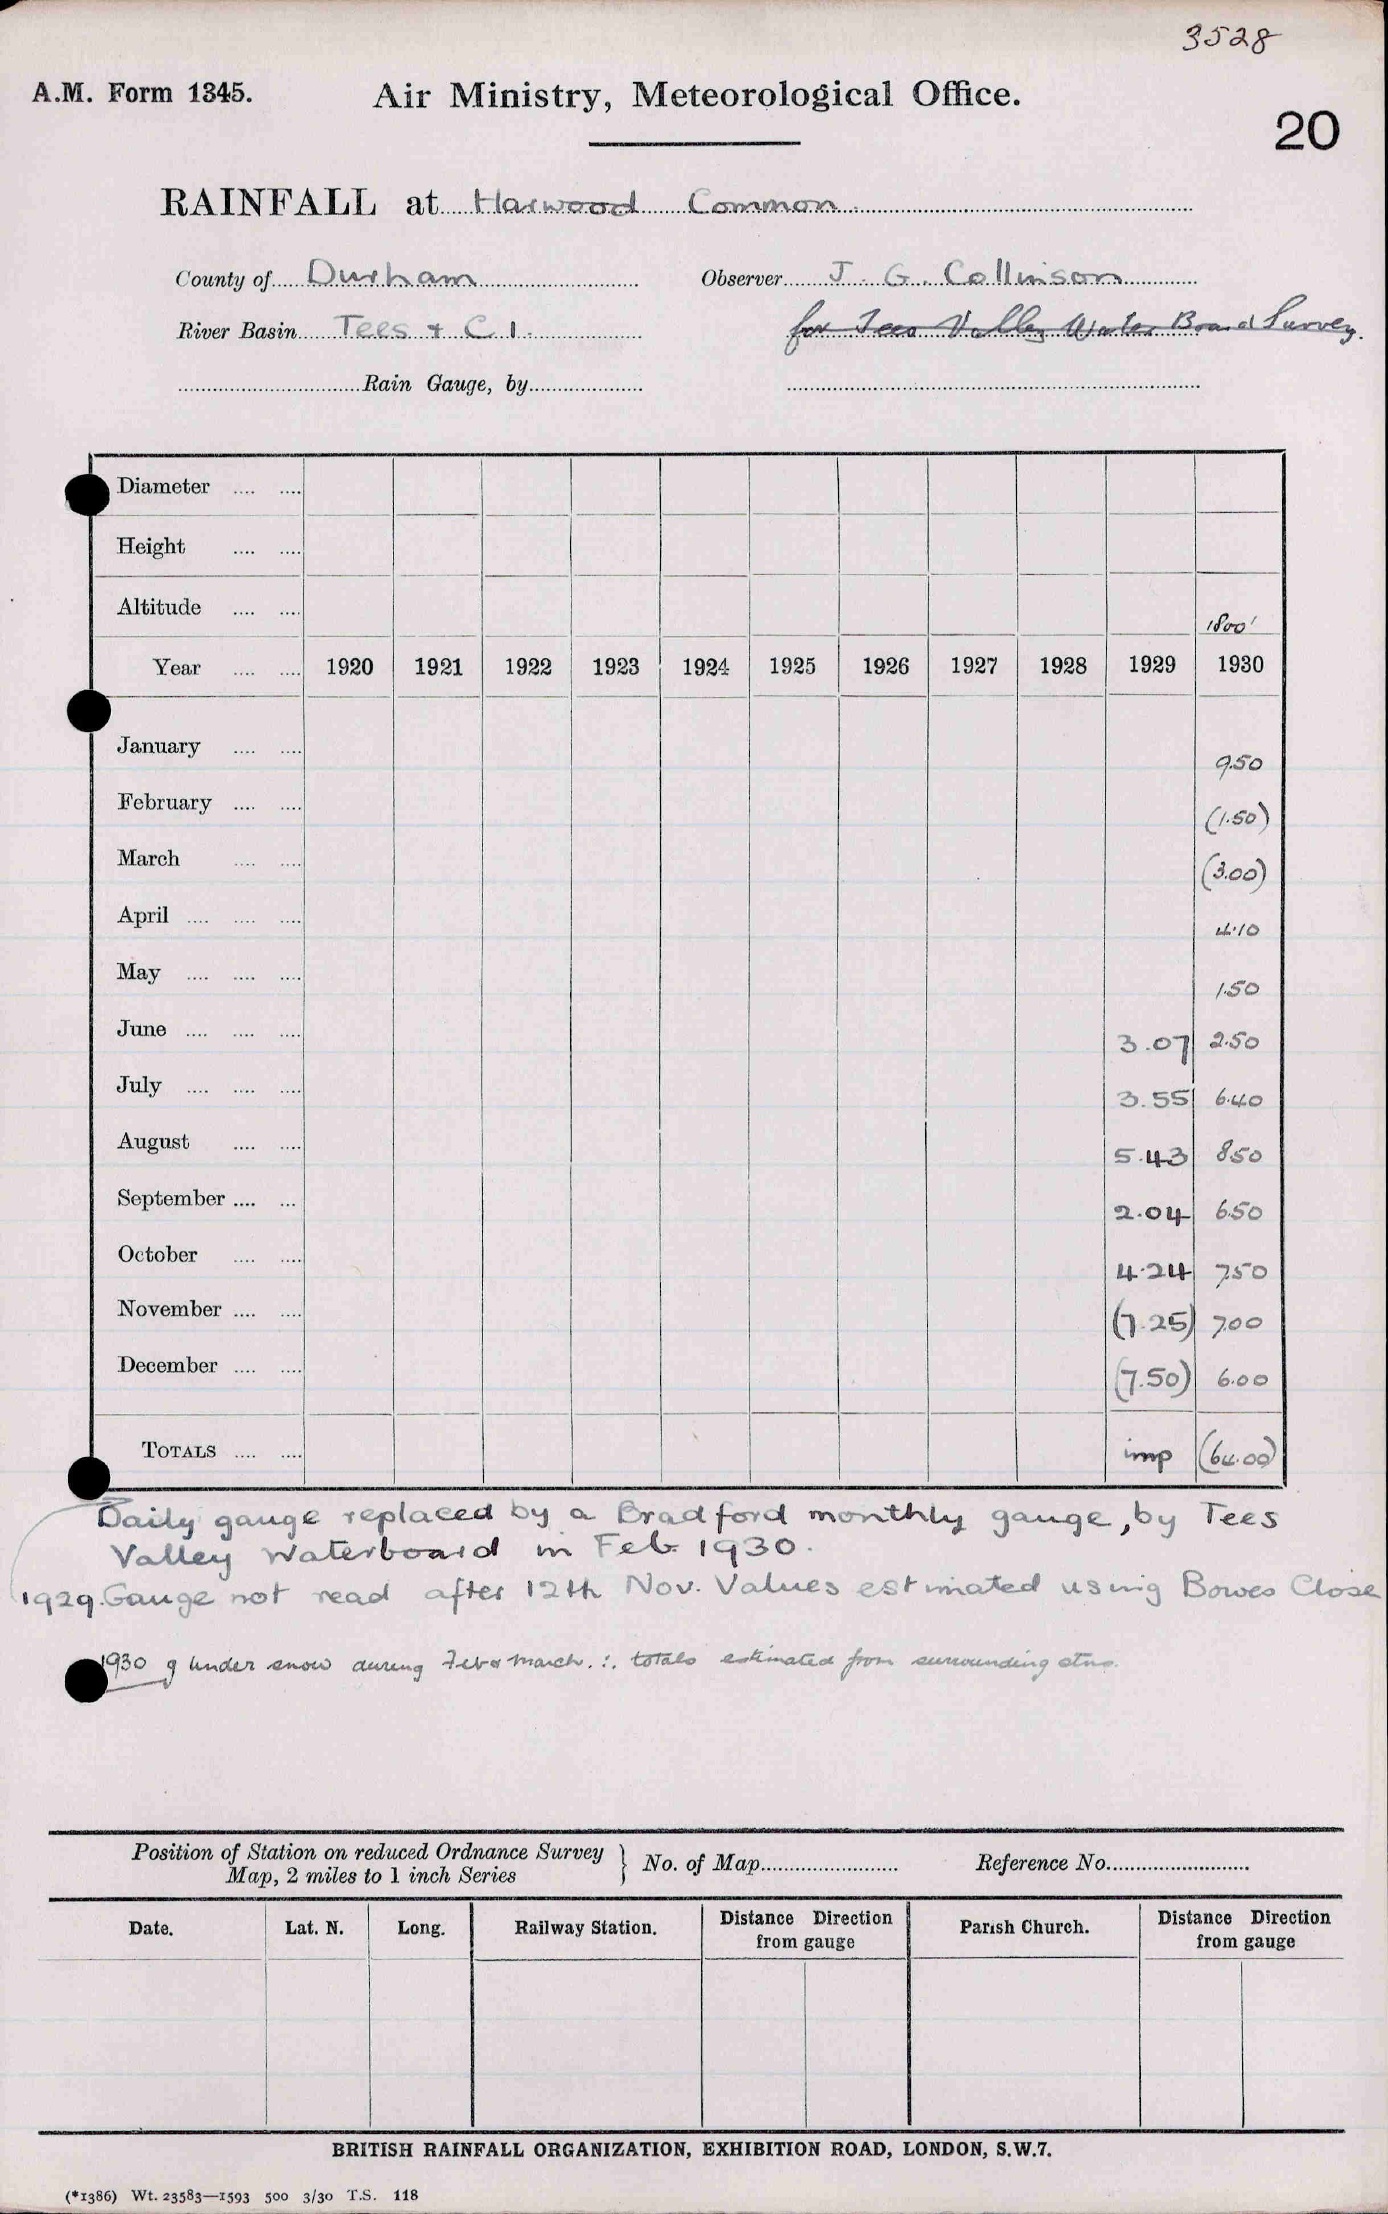 3528
A.M. Form 1345.
Air Ministry, Meteorological Office.
20
RAINFALL at Harwood Common.
County of Durham
Observer J. G. Collinson
River Basin Tees + C 1.
for Tees Valley Water Board Survey.
Rain Gauge, by
Diameter
Height
Altitude 1800'
Year 1920 1921 1922 1923 1924 1925 1926 1927 1928 1929 1930
January 9.50
February (1.50)
March (3.00)
April 4.10
May 1.50
June 3.07 2.50
July 3.55 6.40
August 5.43 8.50
September 2.04 6.50
October 4.24 7.50
November (7.25) 7.00
December (7.50) 6.00
TOTALS imp (64.00)
Daily gauge replaced by a Bradford monthly gauge, by Tees
Valley Waterboard in Feb 1930.
1929. Gauge not read after 12th Nov. Values estimated using Bowes Close
1930 g under snow during Feb & March. ∴ totals estimated from surrounding stns.
Position of Station on reduced Ordnance Survey
Map, 2 miles to 1 inch Series
No. of Map
Reference No.
Date. Lat. N. Long. Railway Station. Distance Direction from gauge Parish Church. Distance Direction from gauge
BRITISH RAINFALL ORGANIZATION, EXHIBITION ROAD, LONDON, S.W.7.
(*1386) Wt. 23583—1593 500 3/30 T.S. 118